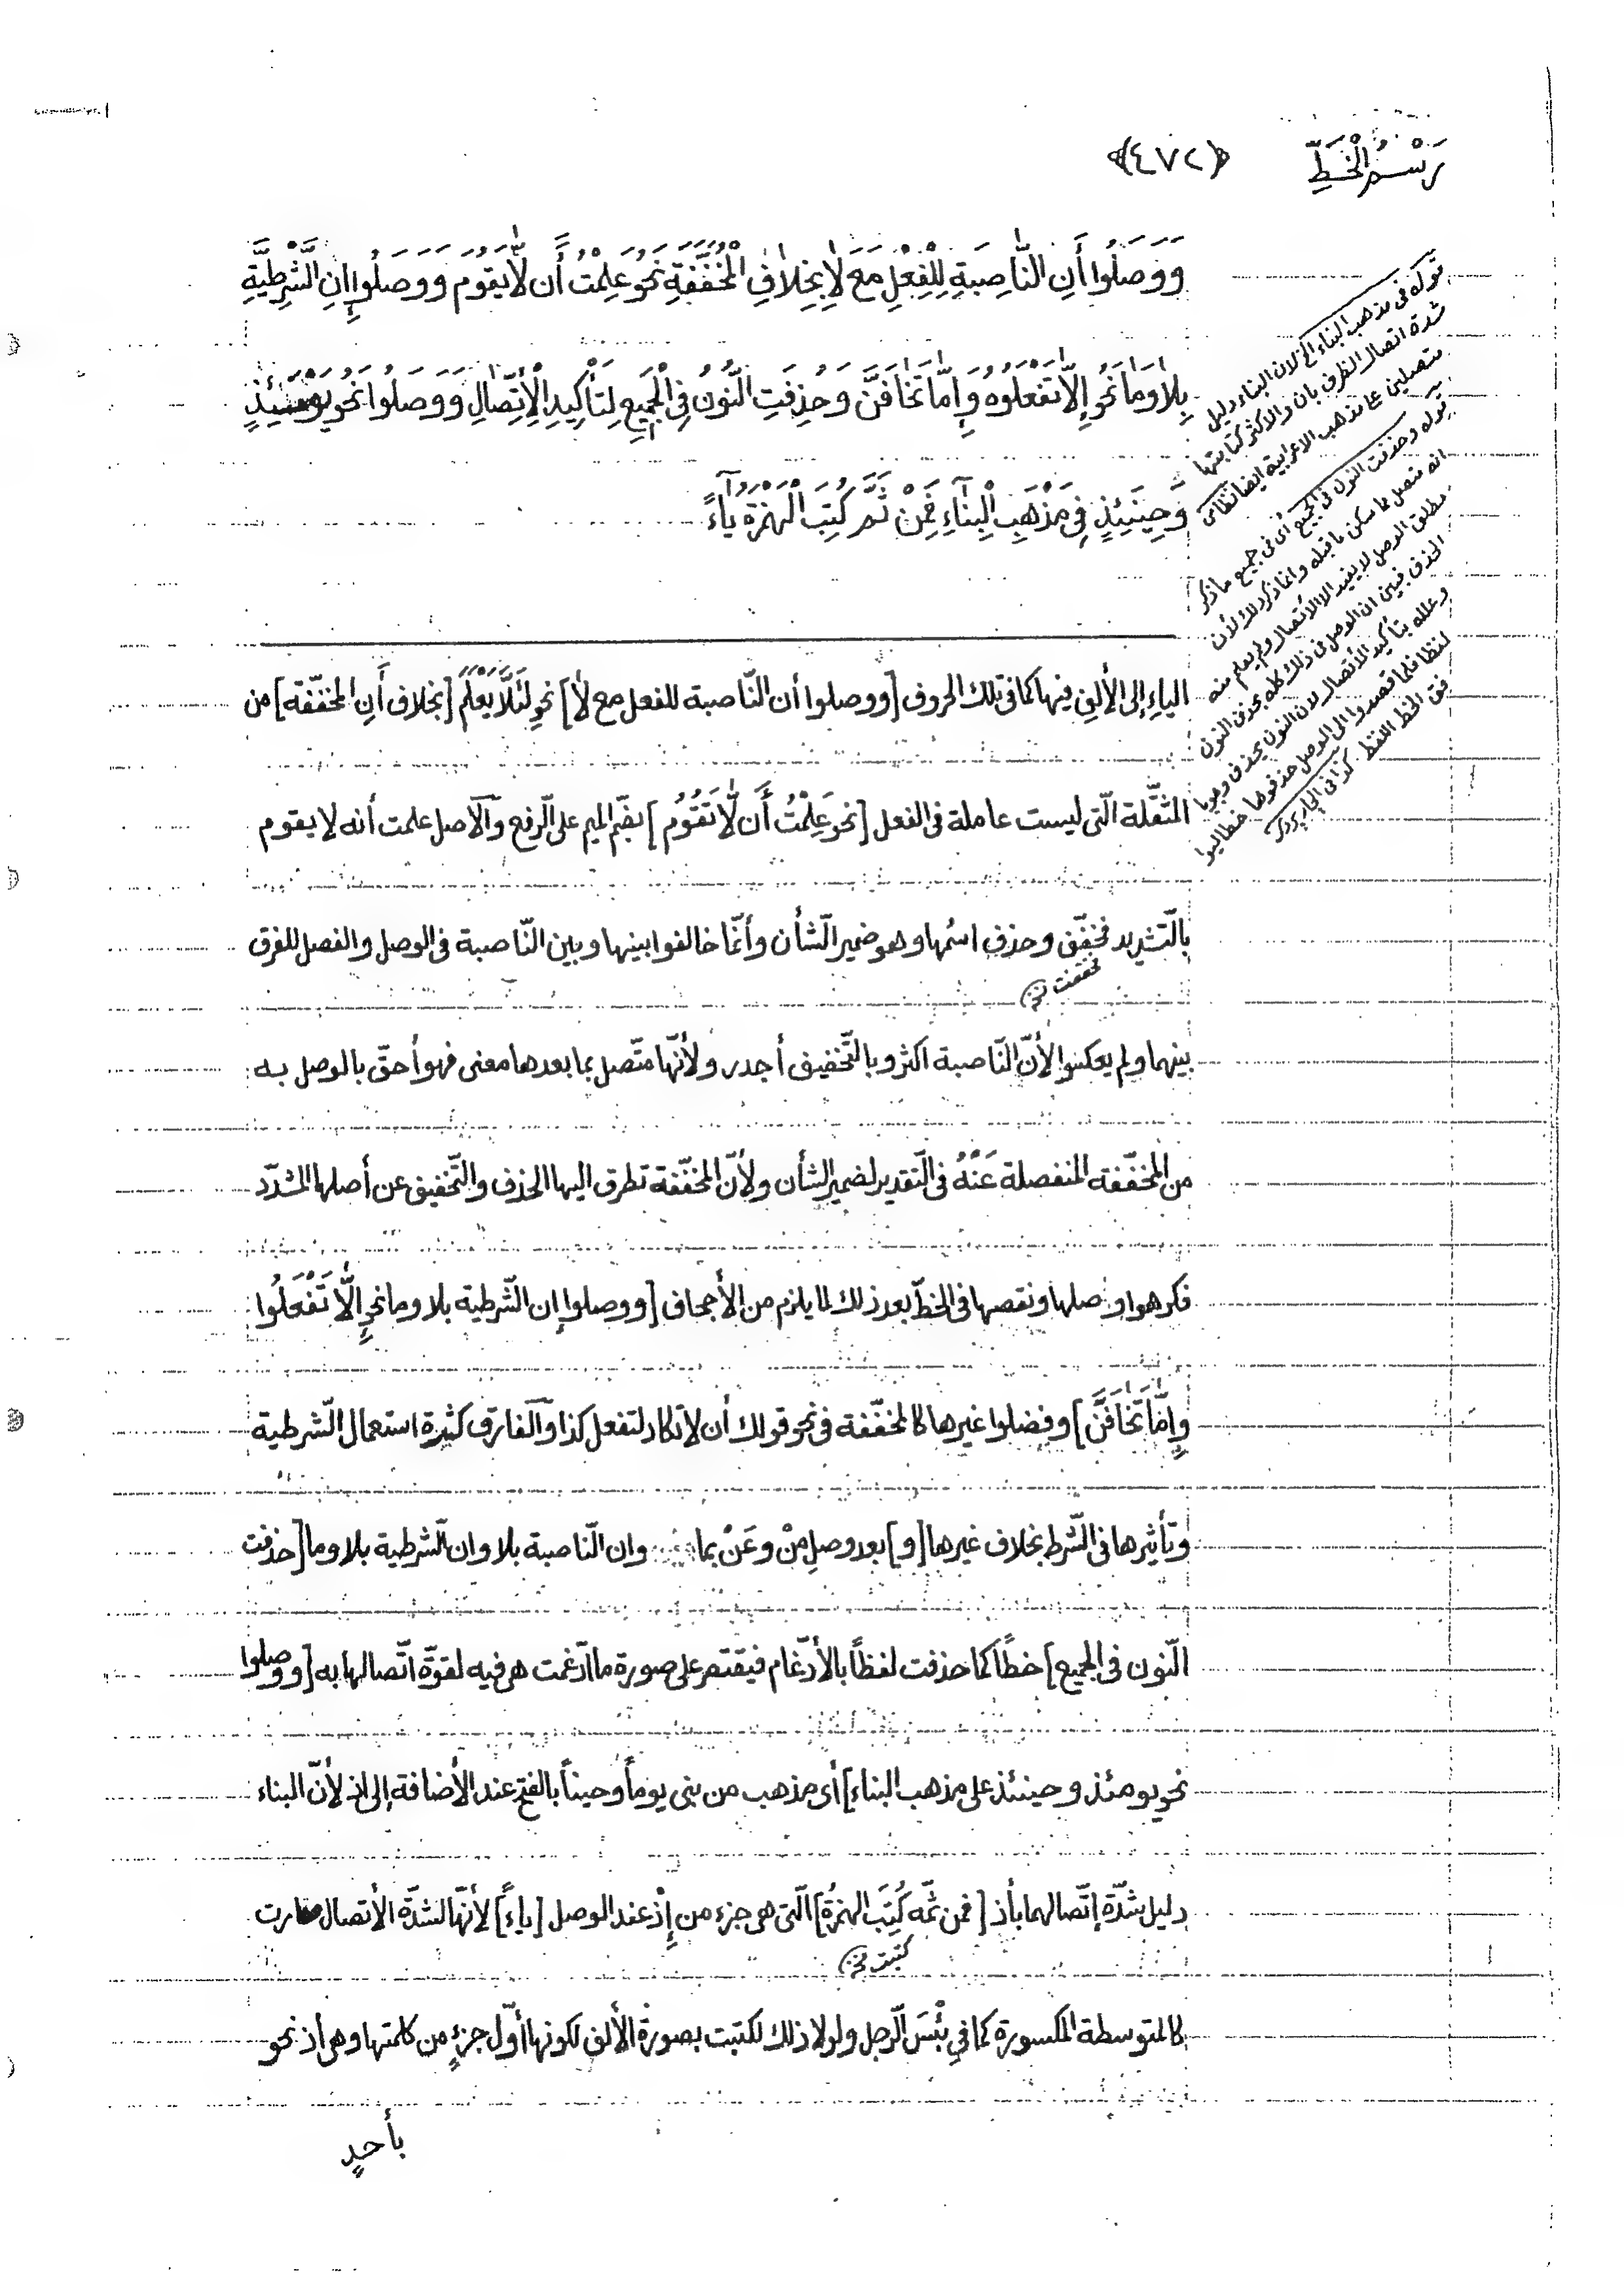 رَسْمُ الْخَطِّ
﴿٤٧٢﴾
وَوَصَلُوا أَنِ النَّاصِبَةِ لِلْفِعْلِ مَعَ لَا بِخِلَافِ الْمُخَفَّفَةِ نَحْوُ عَلِمْتُ أَن لَّا يَقُومَ وَوَصَلُوا إِنِ الشَّرْطِيَّةِ
بِلَا وَمَا نَحْوِ إِلَّا تَفْعَلُوهُ وَإِمَّا تَخَافَنَّ وَحُذِفَتِ النُّونُ فِي الْجَمِيعِ لِتَأْكِيدِ الْاِتِّصَالِ وَوَصَلُوا نَحْوَ يَوْمَئِذٍ
وَحِينَئِذٍ فِي مَذْهَبِ الْبِنَآءِ فَمِنْ ثَمَّ كُتِبَ الْهَمْزَةُ يَآءً
الياءِ إلى الألِفِ فيها كما فى تلك الحروف [ووصلوا أن النّاصبة للفعل مع لا] نحوِ لِئَلَّا يَعْلَمَ [بخلاف أَنِ المخفّفة] من
المثقَّلة الّتى ليست عاملة فى الفعل [نحو عَلِمْتُ أَن لَّا تَقُومُ] بضّم الميم على الّرفع والآصل علمت أنه لا يقوم
بالتّشديد فخفّق وحذف اسمُها وهو ضمير الشّأن وأنّما خالفوا بينها وبين النّاصبة فى الوصل والفصل للفرق
فخففت نخ
بينهما ولم يعكسوا لأنّ النّاصبة اكثر وبالتّخفيف أجدر ولأنّها متّصل بما بعدها معنى فهو أحقّ بالوصل به
من المخفّفة المنفصلة عَنْهُ فى التّقدير لضمير الشأن ولأنّ المخفّفة تطرق اليها الحذف والتّخفيق عن أصلها المشدّد
فكرهوا وصلها ونقصها فى الخطّ بعد ذلك لما يلزم من الأجحاف [ووصلوا إن الشّرطية بلا وما نحوِ إِلَّا تَفْعَلُوا
وإمّا تَخَافَنَّ] وفصلوا غيرها كالمخفّفة فى نحو قولك أن لا تكاد لتفعل كذا والفارق كثرة استعمال الشّرطية
وتأثيرها فى الشّرط بخلاف غيرها [و] بعد وصلِ مِنْ وعَنْ بما وان النّاصبة بلا وان الشّرطية بلا وما [حذفت
النّون فى الجميع] خطّاً كما حذفت لفظاً بالأدّغام فيقتصر على صورة ما ادّغمت هى فيه لقوّة اتّصالها به [ووصلوا
نحو يومئذ وحينئذ على مذهب البناء] أى مذهب من بنى يوماً وحيناً بالفتح عند الأضافة إلى اذ لأنّ البناء
دليل شدّة إتّصالهما بأذ [فمن ثمّه كُتِبَ الهمزةُ] الّتى هى جزء من إذْ عند الوصل [ياءً] لأنّها لشدّة الأتصال صارت
كتبت نخ
كالمتوسطة المكسورة كما فى بِئْسَ الّرجل ولولا ذلك لكتبت بصورة الألف لكونها أوّل جزءٍ من كلمتها وهى أذ نحو
بأحدٍ
قوله فى مذهب البناء الخ لان البناء دليل
شدة اتصال الظرف بان والاكثر كتابتها
متصلين على مذهب الاعرابية ايضا نظامى
قوله وحذفت النون فى الجميع أى فى جميع ما ذكر
انه متصل مما سكن ما قبله وانما ذكر ذلك لأن
مطلق الوصل لا يفيد الا الأتصال ولم يعلم منه
الحذف فبين ان الوصل فى ذلك كله بحذف النون
وعلله بتأكيد الأتصال لان النون يحذف وجوبا
لفظا فلما قصدوا الى الوصل حذفوها خطا ليوا
فق الخط اللفظ كذا فى الجاربردى